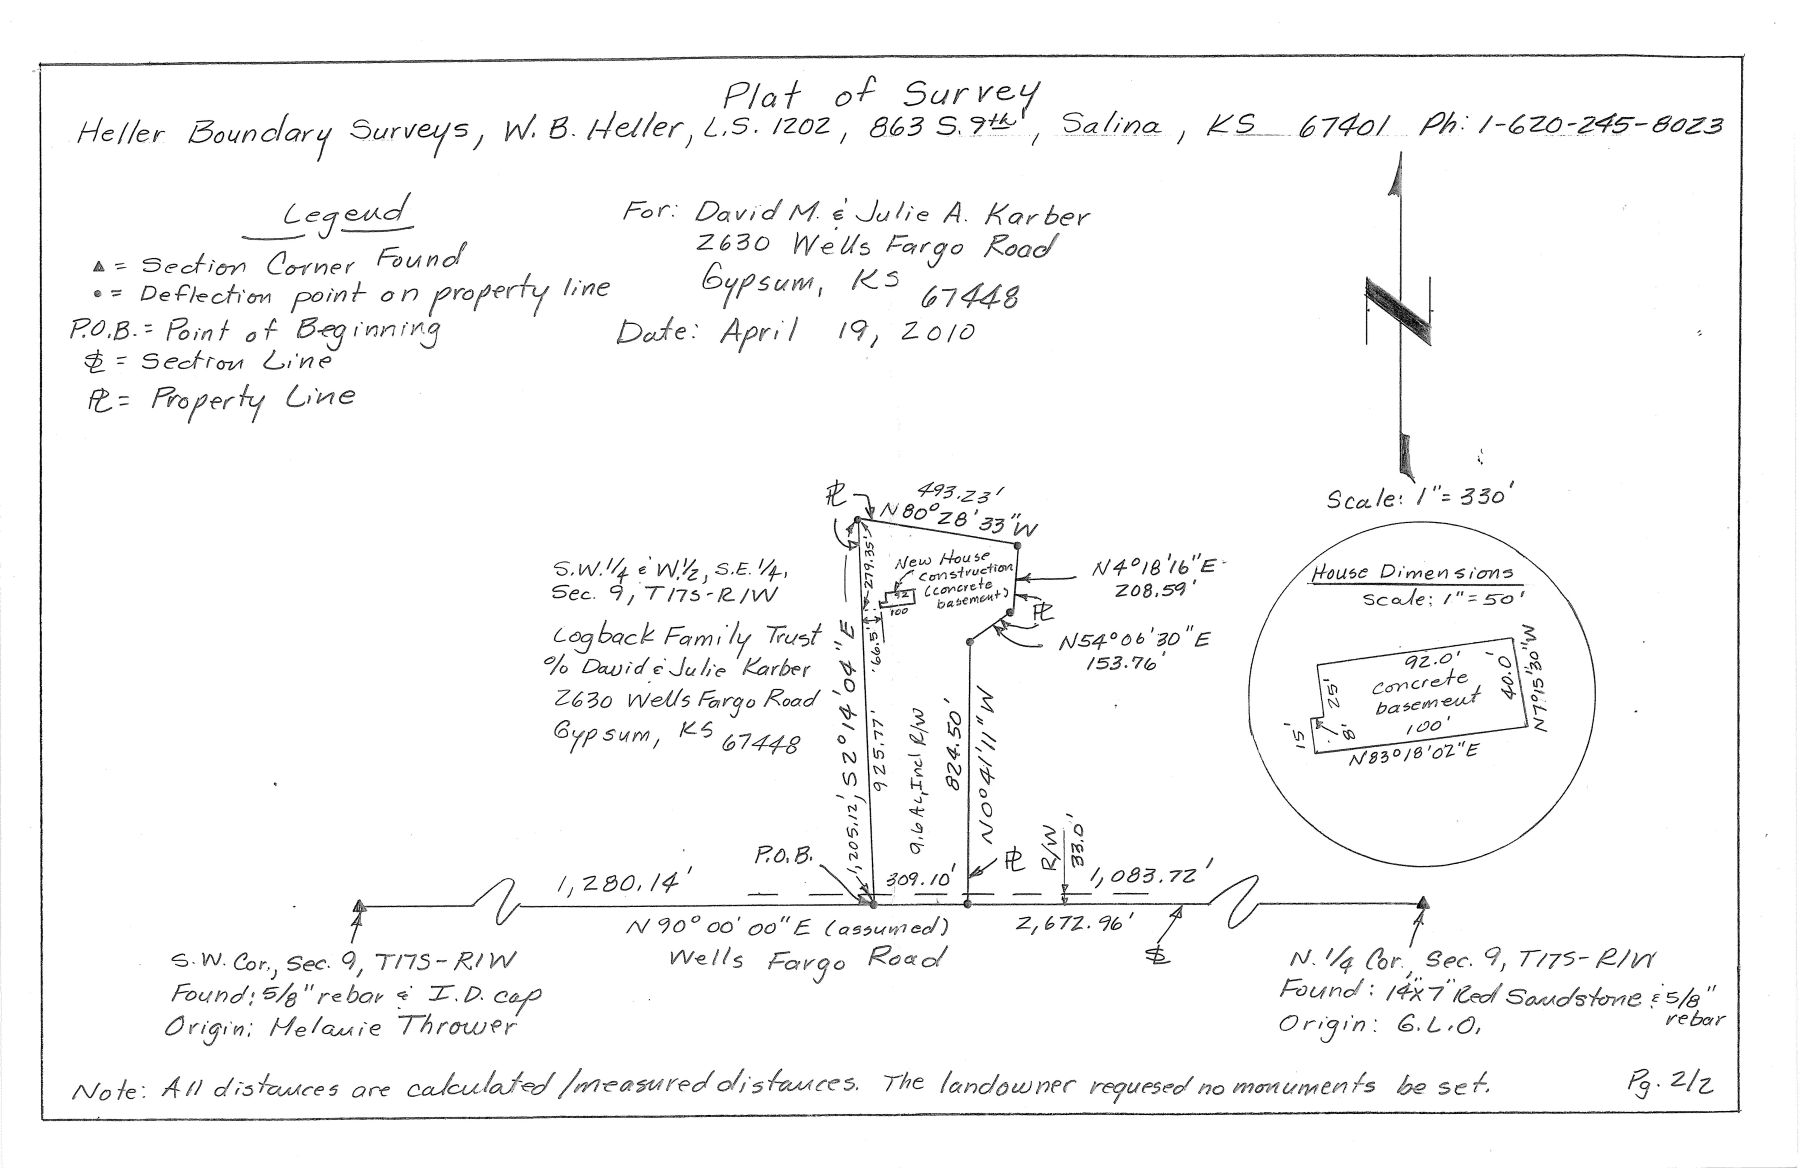 Plat of Survey
Heller Boundary Surveys, W. B. Heller, L.S. 1202, 863 S. 9th, Salina, KS 67401 Ph: 1-620-245-8023
Legend
▲ = Section Corner Found
• = Deflection point on property line
P.O.B. = Point of Beginning
SL = Section Line
PL = Property Line
For: David M. & Julie A. Karber
2630 Wells Fargo Road
Gypsum, KS 67448
Date: April 19, 2010
N
Scale: 1" = 330'
House Dimensions
Scale: 1" = 50'
92.0'
concrete
basement
100'
25'
15'
8'
40.0'
N7°15'30"W
N83°18'02"E
PL
493.23'
N80°28'33"W
279.35'
New House
construction
(concrete
basement)
92
100
66.5'
N4°18'16"E
208.59'
PL
N54°06'30"E
153.76'
S.W.1/4 & W.1/2, S.E.1/4,
Sec. 9, T17S-R1W
Logback Family Trust
% David & Julie Karber
2630 Wells Fargo Road
Gypsum, KS 67448
1,205.12', S2°14'04"E
925.77'
9.6 Ac, Incl R/W
824.50'
N0°41'11"W
PL
R/W
33.0'
P.O.B.
1,280.14'
309.10'
1,083.72'
N90°00'00"E (assumed)
2,672.96'
SL
Wells Fargo Road
S.W. Cor., Sec. 9, T17S-R1W
Found: 5/8" rebar & I.D. cap
Origin: Melanie Thrower
N. 1/4 Cor., Sec. 9, T17S-R1W
Found: 14"x7" Red Sandstone & 5/8"
rebar
Origin: G.L.O.
Note: All distances are calculated/measured distances. The landowner requesed no monuments be set.
Pg. 2/2